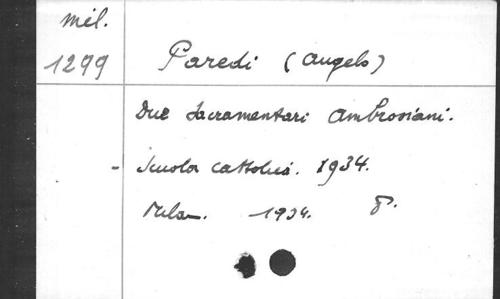 mél.
1299 Paredi (Angelo)
Due Sacramentari Ambrosiani.
- Scuola cattolica. 1934.
Milan. 1934. 8°.